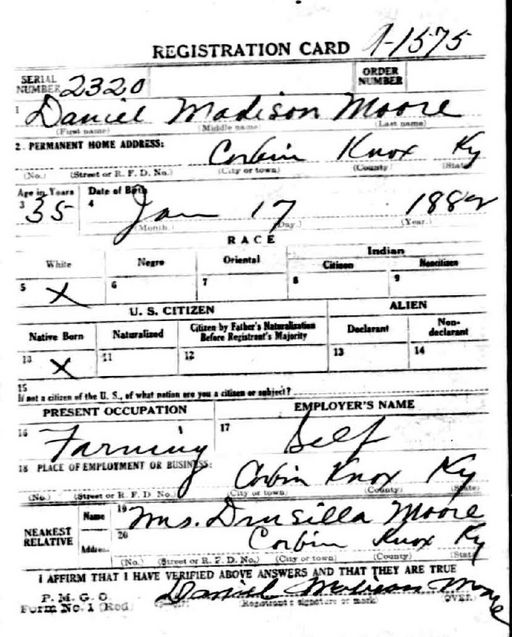 REGISTRATION CARD 1-1575
SERIAL NUMBER 2320 ORDER NUMBER
1 Daniel Madison Moore
(First name) (Middle name) (Last name)
2 PERMANENT HOME ADDRESS: Corbin Knox Ky
(No.) (Street or R. F. D. No.) (City or town) (County) (State)
Age in Years Date of Birth
3 35 4 Jan 17 1882
(Month.) (Day.) (Year.)
RACE
White Negro Oriental Indian
Citizen Noncitizen
5 X 6 7 8 9
U. S. CITIZEN ALIEN
Native Born Naturalized Citizen by Father's Naturalization Before Registrant's Majority Declarant Non-declarant
10 X 11 12 13 14
15
If not a citizen of the U. S., of what nation are you a citizen or subject?
PRESENT OCCUPATION EMPLOYER'S NAME
16 Farming 17 Self
18 PLACE OF EMPLOYMENT OR BUSINESS: Corbin Knox Ky
(No.) (Street or R. F. D. No.) (City or town) (County) (State)
NEAREST RELATIVE Name 19 Mrs. Drusilla Moore
Address 20 Corbin Knox Ky
(No.) (Street or R. F. D. No.) (City or town) (County) (State)
I AFFIRM THAT I HAVE VERIFIED ABOVE ANSWERS AND THAT THEY ARE TRUE
P. M. G. O. Daniel Madison Moore
Form No. 1 (Red) Registrant's signature or mark OVER.